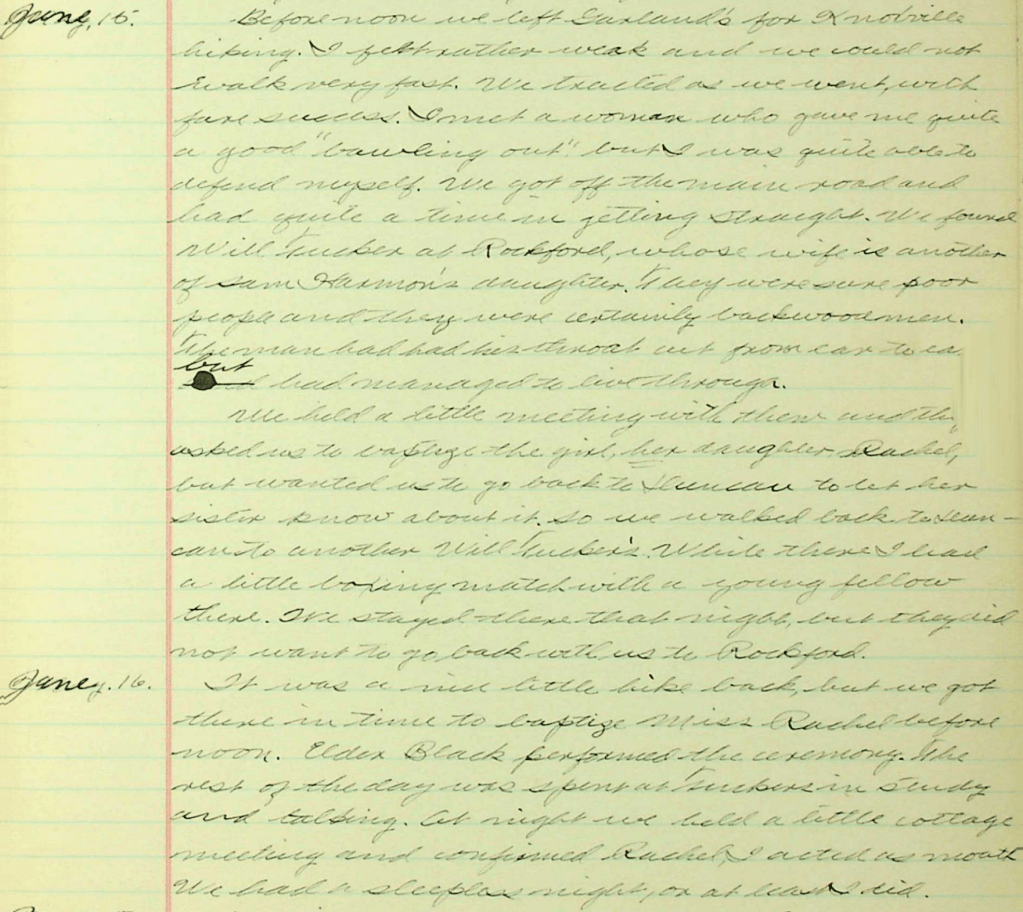 Jany. 15. Before noon we left Garland's for Knoxville
hiking. I felt rather weak and we could not
walk very fast. We tracted as we went, with
fare success. I met a woman who gave me quite
a good "bawling out" but I was quite able to
defend myself. We got off the main road and
had quite a time in getting straight. We found
Will Tucker at Rockford, whose wife is another
of Sam Harmon's daughter. They were sure poor
people and they were certainly backwoodsmen.
The man had had his throat cut from ear to ea
but had managed to live through.
We held a little meeting with them and the
asked us to baptize the girl, her daughter Rachel,
but wanted us to go back to Duncan to let her
sister know about it. So we walked back to Dun-
can to another Will Tucker's. While there I had
a little boxing match with a young fellow
there. We stayed there that night, but they did
not want to go back with us to Rockford.
Jany. 16. It was a nice little hike back, but we got
there in time to baptize Miss Rachel before
noon. Elder Black performed the ceremony. The
rest of the day was spent at Tuckers in study
and talking. At night we held a little cottage
meeting and confirmed Rachel, I acted as mouth
We had a sleepless night, or at least I did.